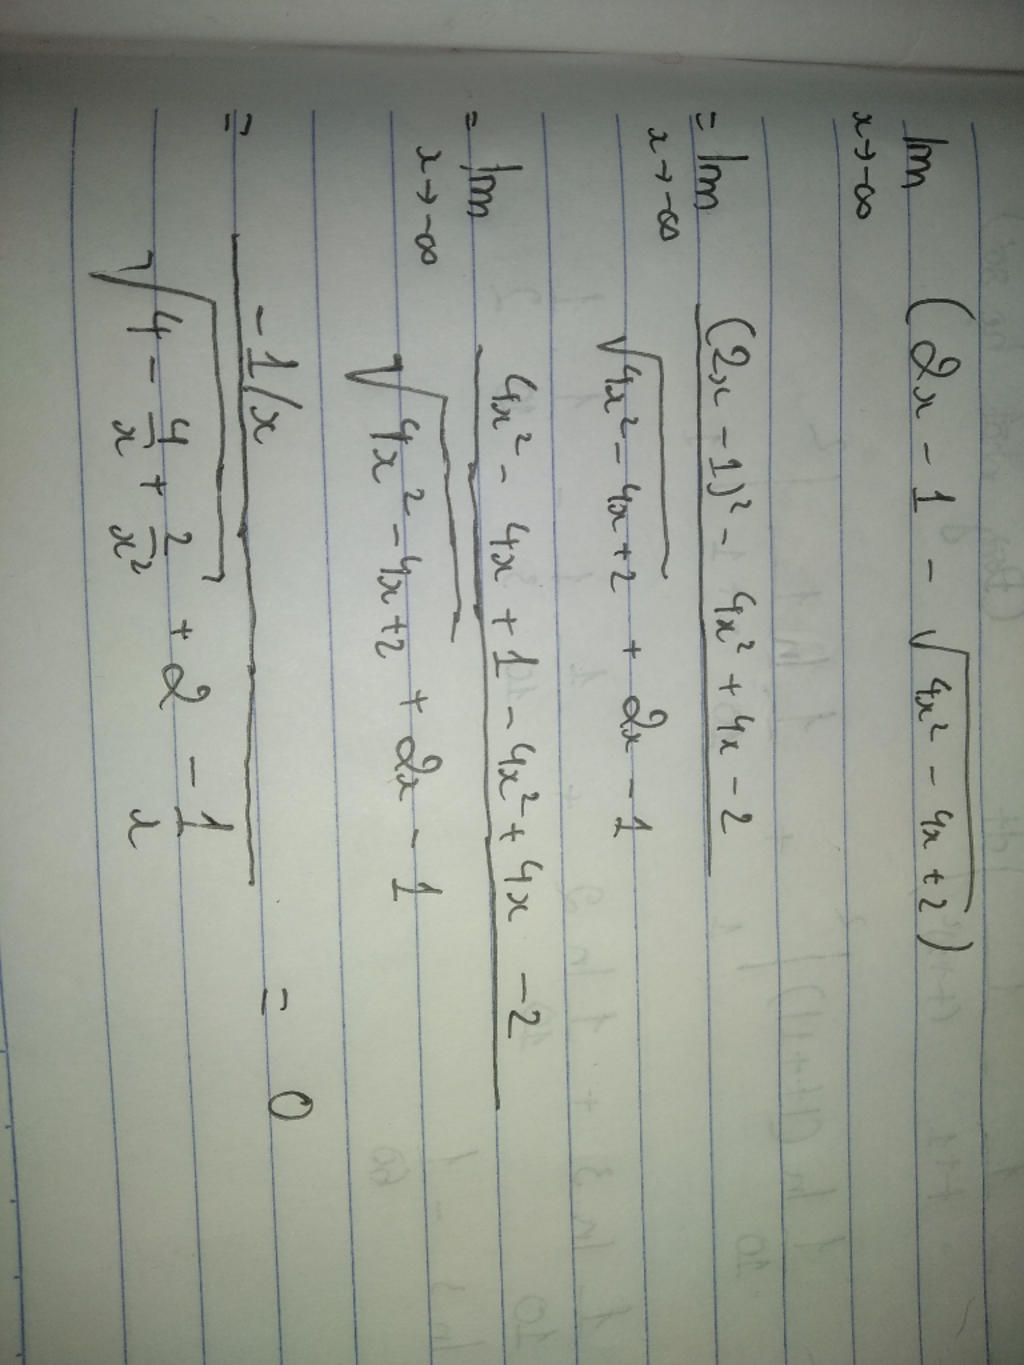 lim (2x - 1 - √(4x² - 4x + 2))
x→-∞
= lim (2x - 1)² - 4x² + 4x - 2
x→-∞ √(4x² - 4x + 2) + 2x - 1
= lim 4x² - 4x + 1 - 4x² + 4x - 2
x→-∞ √(4x² - 4x + 2) + 2x - 1
= -1/x = 0
√(4 - 4/x + 2/x²) + 2 - 1/x